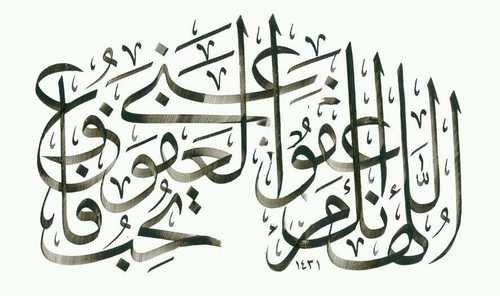 اللهم إنك عفو تحب العفو فاعف عني
١٤٣١